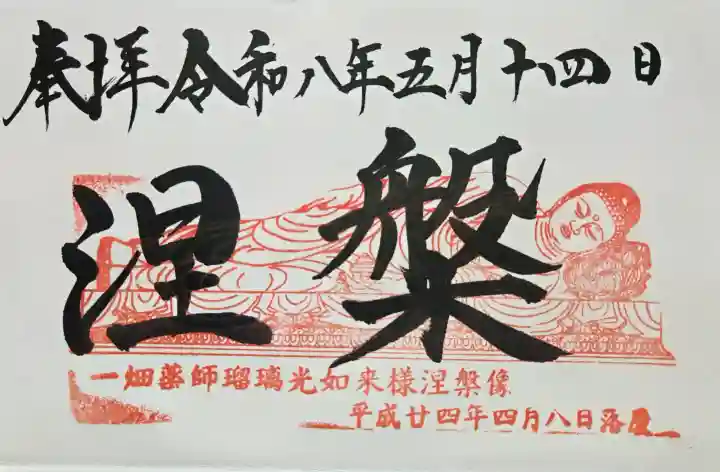 奉拝 令和八年五月十四日
涅槃
一畑薬師瑠璃光如来様涅槃像
平成廿四年四月八日落慶